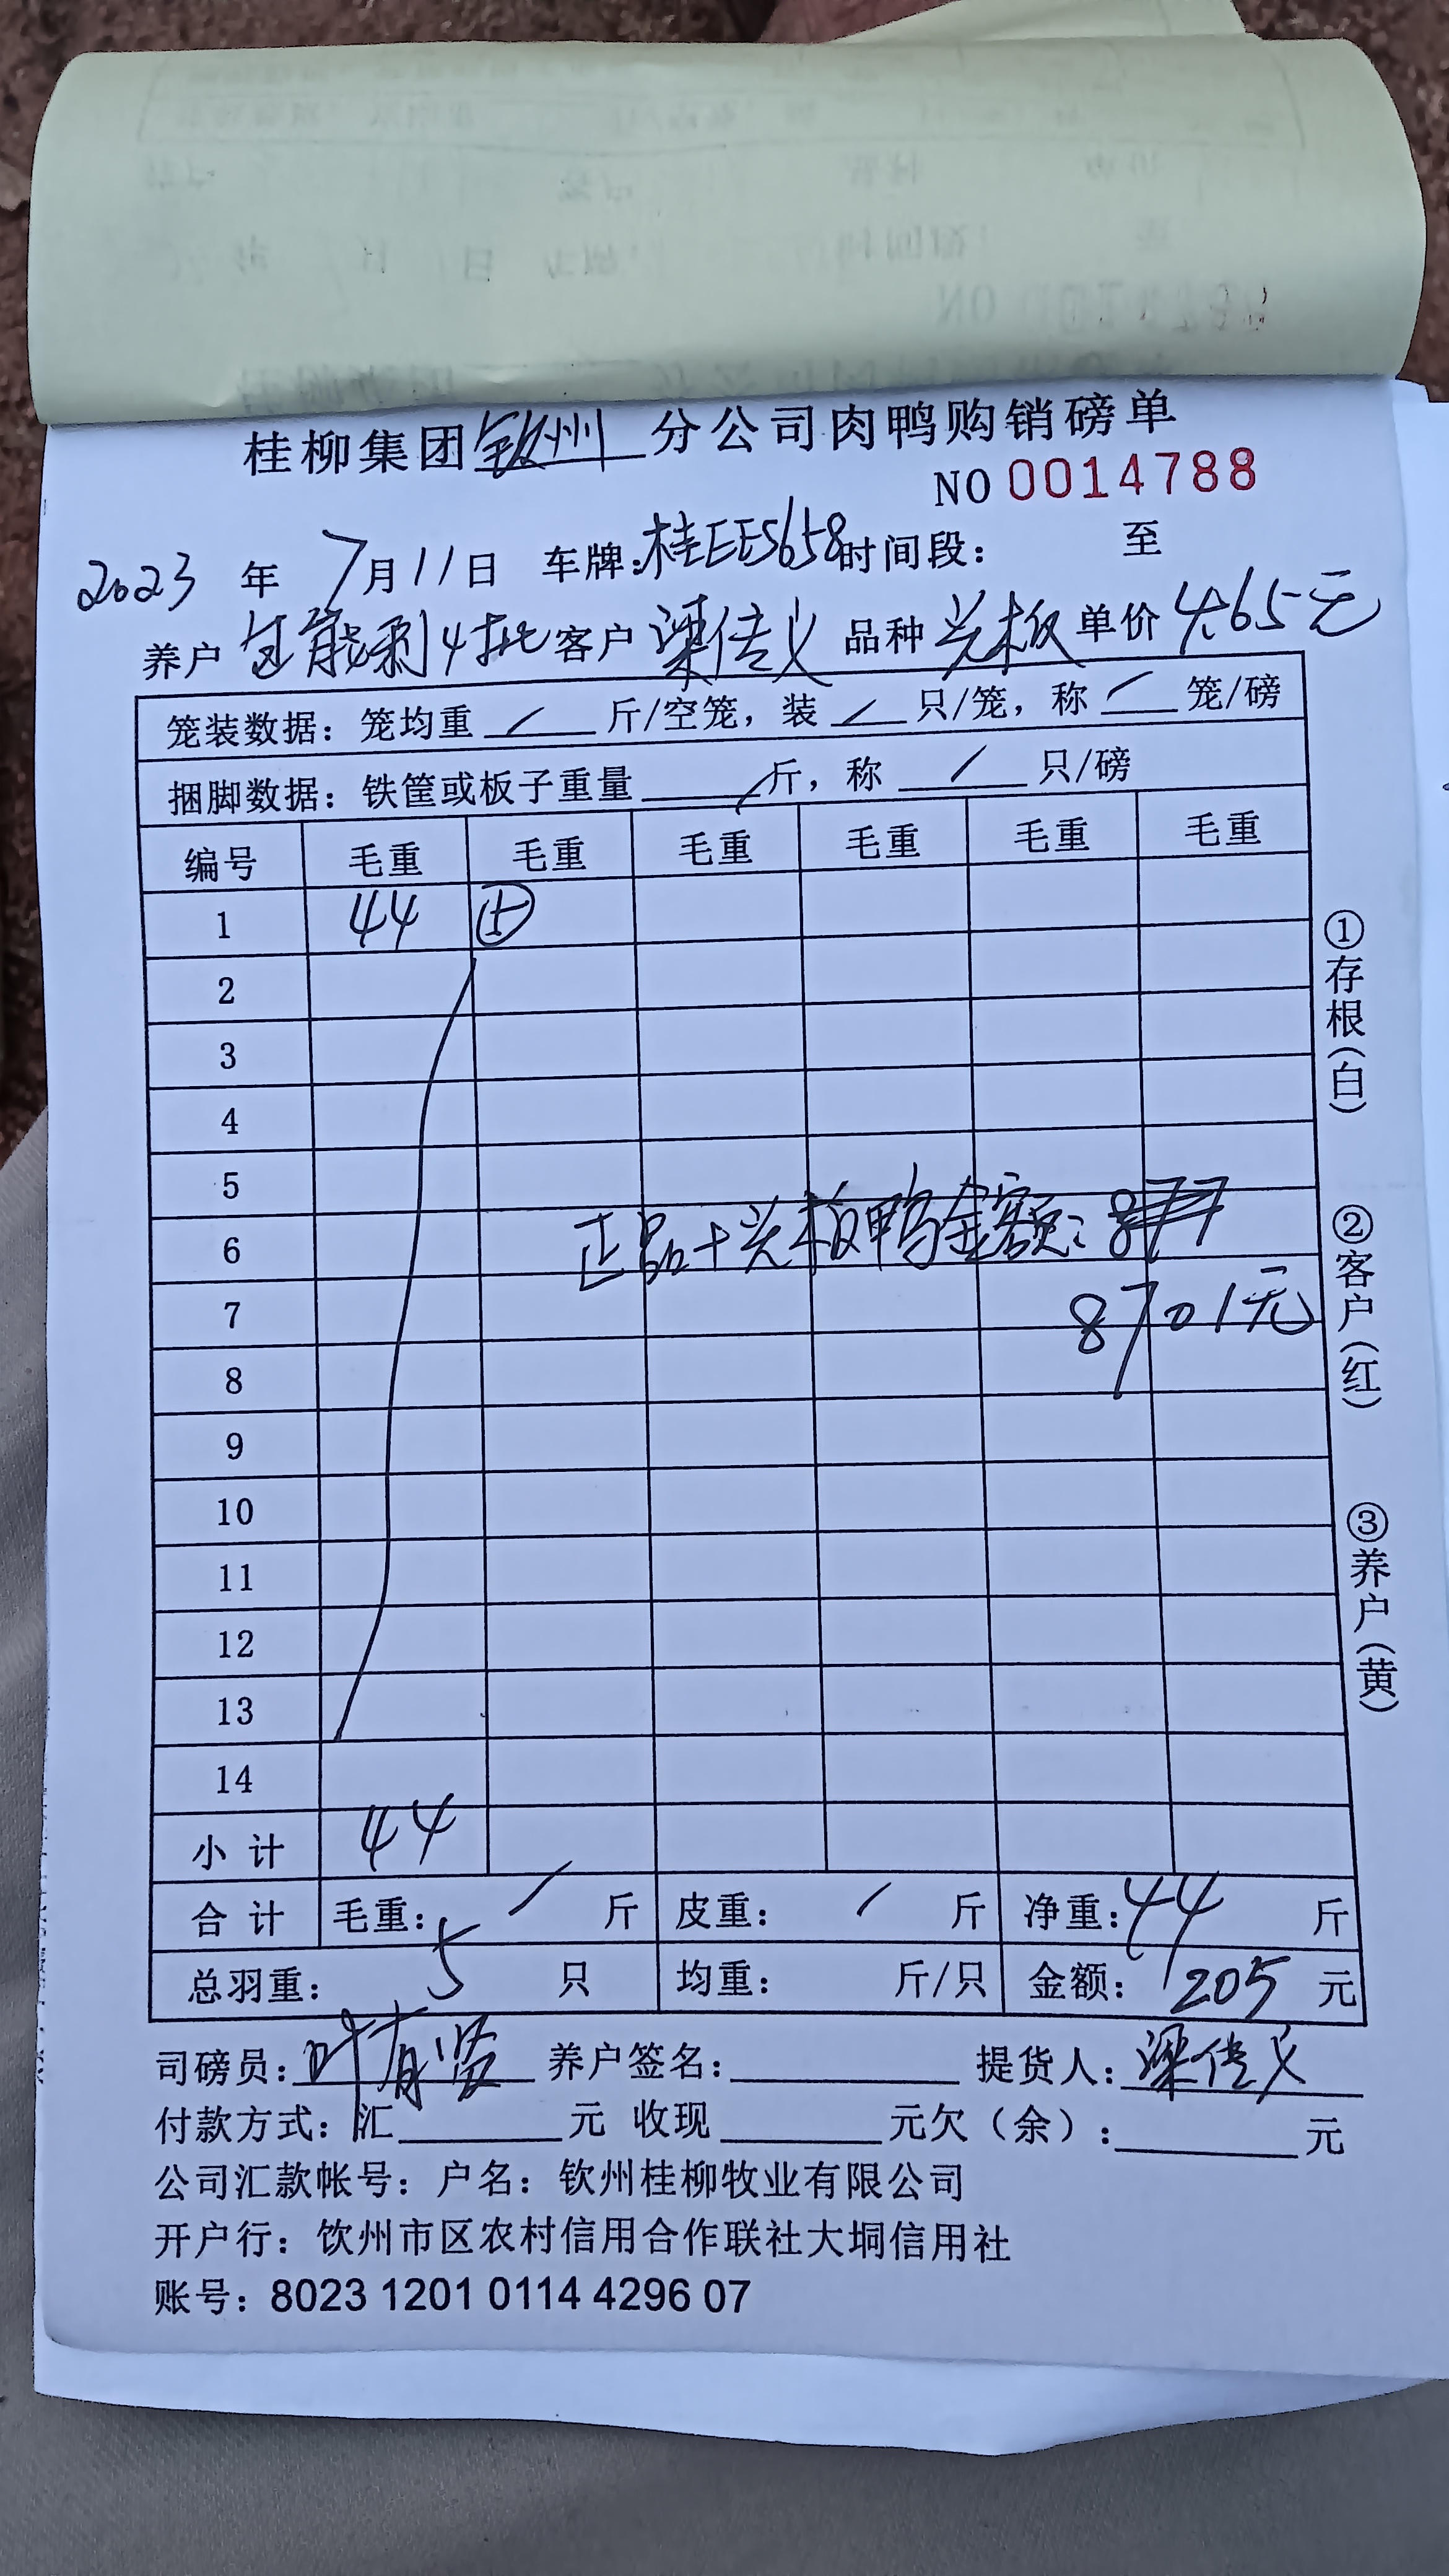 桂柳集团钦州分公司肉鸭购销磅单
NO 0014788
2023 年 7月11日 车牌:桂EE5658时间段: 至
养户 能剩4批 客户 梁佳义 品种 光板 单价 4.65元
笼装数据: 笼均重 / 斤/空笼, 装 / 只/笼, 称 / 笼/磅
捆脚数据: 铁筐或板子重量 / 斤, 称 / 只/磅
编号 毛重 毛重 毛重 毛重 毛重 毛重
1 44 ⑤
2
3
4
5
6 正品+光板鸭金额:
7 8701元
8
9
10
11
12
13
14
小计 44
合计 毛重: / 斤 皮重: / 斤 净重:44 斤
总羽重: 5 只 均重: 斤/只 金额: 205 元
司磅员: 叶有贤 养户签名: 提货人: 梁佳义
付款方式: 汇 元 收现 元欠(余): 元
公司汇款帐号: 户名: 钦州桂柳牧业有限公司
开户行: 钦州市区农村信用合作联社大垌信用社
账号: 8023 1201 0114 4296 07
①存根(白)
②客户(红)
③养户(黄)